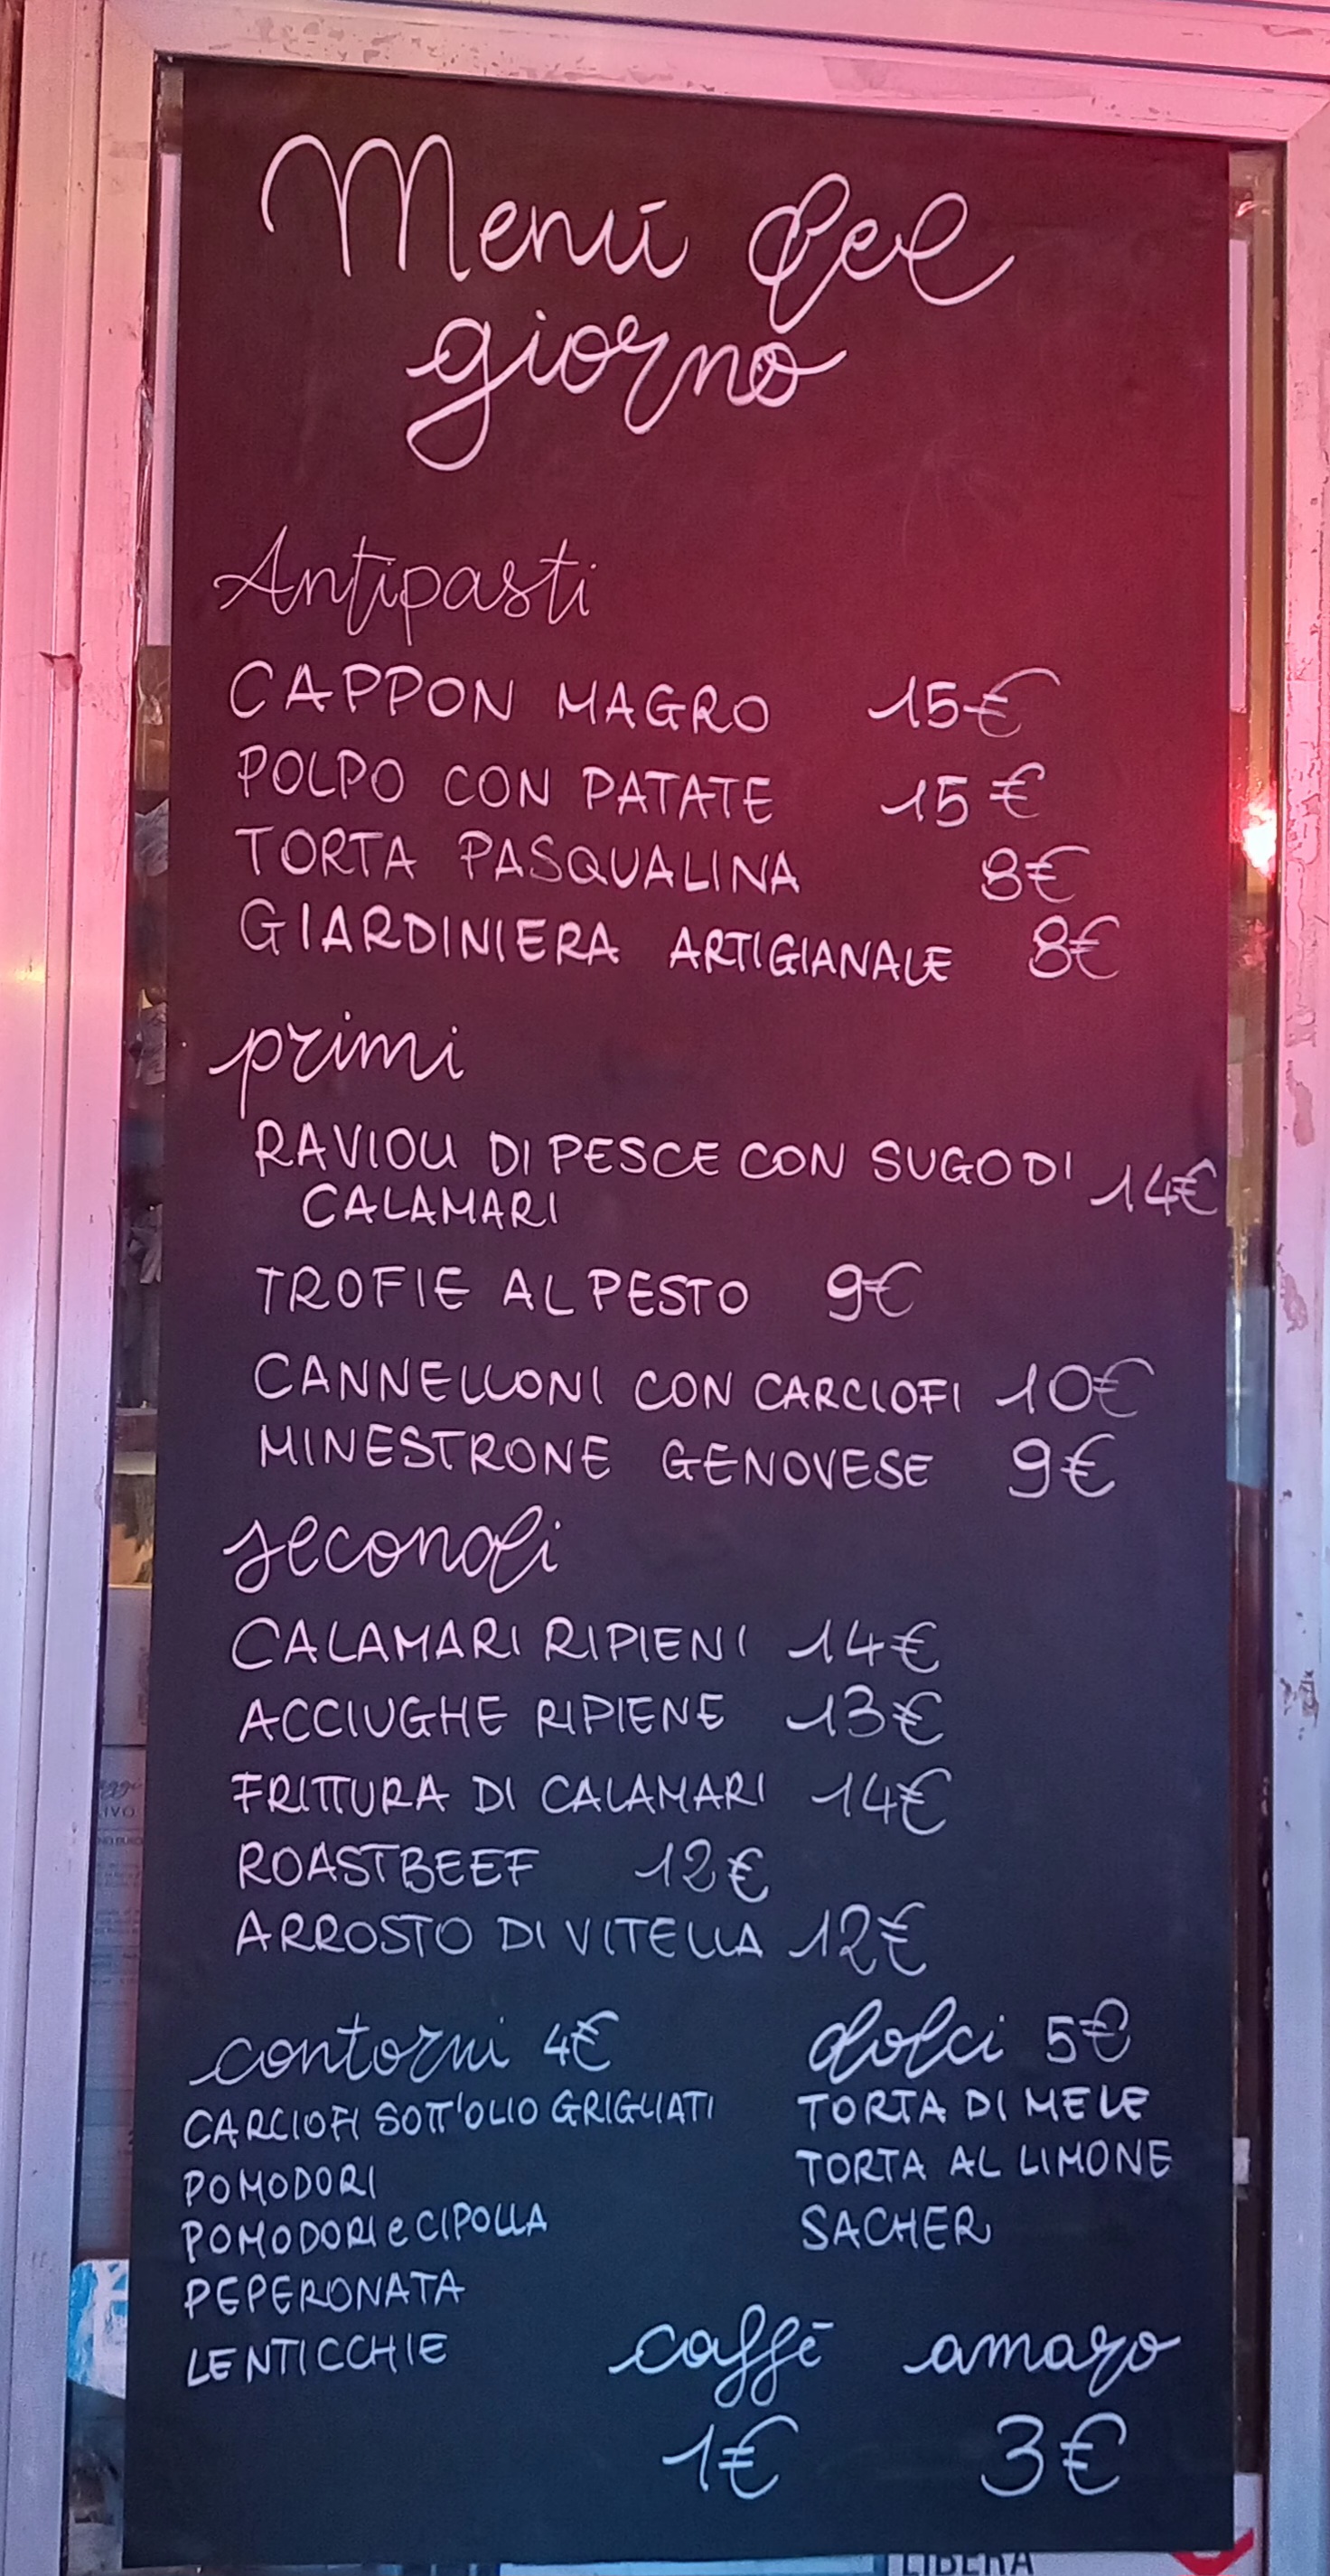 Menú del
giorno
Antipasti
CAPPON MAGRO 15€
POLPO CON PATATE 15€
TORTA PASQUALINA 8€
GIARDINIERA ARTIGIANALE 8€
primi
RAVIOLI DI PESCE CON SUGO DI 14€
CALAMARI
TROFIE AL PESTO 9€
CANNELLONI CON CARCIOFI 10€
MINESTRONE GENOVESE 9€
secondi
CALAMARI RIPIENI 14€
ACCIUGHE RIPIENE 13€
FRITTURA DI CALAMARI 14€
ROASTBEEF 12€
ARROSTO DI VITELLA 12€
contorni 4€
CARCIOFI SOTT'OLIO GRIGLIATI
POMODORI
POMODORI e CIPOLLA
PEPERONATA
LENTICCHIE
dolci 5€
TORTA DI MELE
TORTA AL LIMONE
SACHER
caffè amaro
1€ 3€
LIBERA